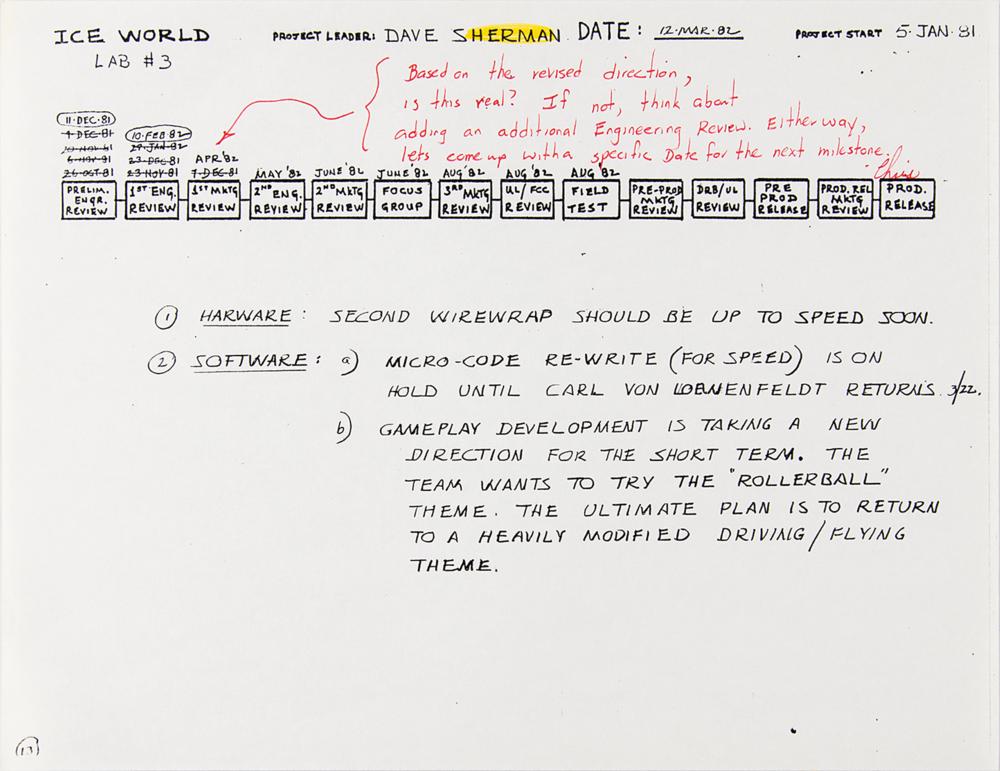 ICE WORLD PROJECT LEADER: DAVE SHERMAN DATE: 12·MAR·82 PROJECT START 5·JAN·81
LAB #3
Based on the revised direction,
is this real? If not, think about
adding an additional Engineering Review. Either way,
lets come up with a specific Date for the next milestone.
Chris
11·DEC·81
4·DEC·81 10·FEB·82
20·NOV·81 29·JAN·82
6·NOV·81 23·DEC·81 APR'82
26·OCT·81 23·NOV·81 7·DEC·81 MAY '82 JUNE '82 JUNE '82 AUG'82 AUG '82 AUG '82
PRELIM. ENGR. REVIEW
1ST ENG. REVIEW
1ST MKTG REVIEW
2ND ENG. REVIEW
2ND MKTG REVIEW
FOCUS GROUP
3RD MKTG REVIEW
UL/FCC REVIEW
FIELD TEST
PRE-PROD MKTG REVIEW
DRB/UL REVIEW
PRE PROD RELEASE
PROD. REL MKTG REVIEW
PROD. RELEASE
1 HARWARE: SECOND WIREWRAP SHOULD BE UP TO SPEED SOON.
2 SOFTWARE: a) MICRO-CODE RE-WRITE (FOR SPEED) IS ON
HOLD UNTIL CARL VON LOEWENFELDT RETURNS 3/22.
b) GAMEPLAY DEVELOPMENT IS TAKING A NEW
DIRECTION FOR THE SHORT TERM. THE
TEAM WANTS TO TRY THE "ROLLERBALL"
THEME. THE ULTIMATE PLAN IS TO RETURN
TO A HEAVILY MODIFIED DRIVING/FLYING
THEME.
13